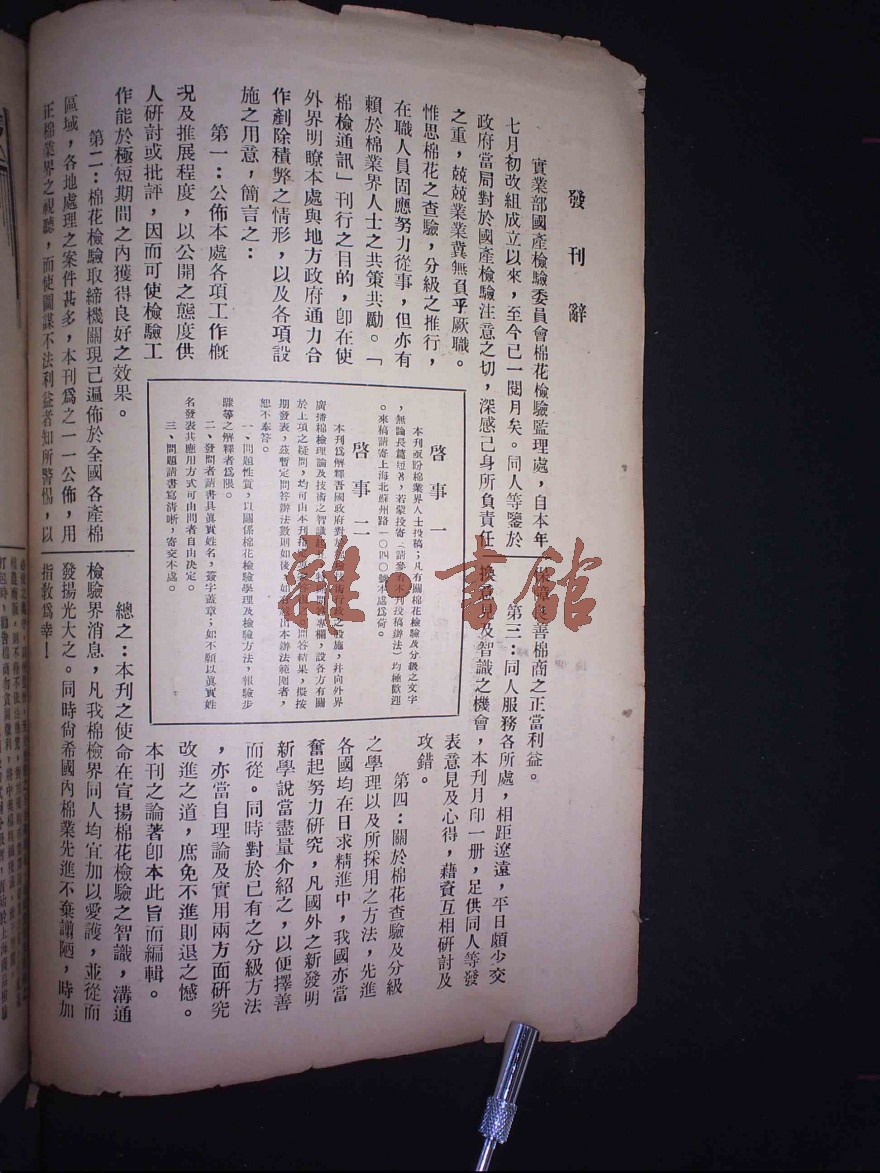 發刊辭
實業部國產檢驗委員會棉花檢驗監理處，自本年
七月初改組成立以來，至今已一閱月矣。同人等鑒於
政府當局對於國產檢驗注意之切，深感己身所負責任
之重，兢兢業業冀無負乎厥職。
惟思棉花之查驗，分級之推行，
在職人員固應努力從事，但亦有
賴於棉業界人士之共策共勵。「
棉檢通訊」刊行之目的，卽在使
外界明瞭本處與地方政府通力合
作剷除積弊之情形，以及各項設
施之用意，簡言之：
第一：公佈本處各項工作概
況及推展程度，以公開之態度供
人研討或批評，因而可使檢驗工
作能於極短期間之內獲得良好之效果。
第二：棉花檢驗取締機關現已遍佈於全國各產棉
區域，各地處理之案件甚多，本刊爲之一一公佈，用
正棉業界之視聽，而使圖謀不法利益者知所警惕，以
保障良善棉商之正當利益。
第三：同人服務各所處，相距遼遠，平日頗少交
換意見及智識之機會，本刊月印一册，足供同人等發
表意見及心得，藉資互相研討及
攻錯。
第四：關於棉花查驗及分級
之學理以及所採用之方法，先進
各國均在日求精進中，我國亦當
奮起努力研究，凡國外之新發明
新學說當盡量介紹之，以便擇善
而從。同時對於已有之分級方法
，亦當自理論及實用兩方面研究
改進之道，庶免不進則退之憾。
本刊之論著卽本此旨而編輯。
總之：本刊之使命在宣揚棉花檢驗之智識，溝通
檢驗界消息，凡我棉檢界同人均宜加以愛護，並從而
發揚光大之。同時尙希國內棉業先進不棄謭陋，時加
指敎爲幸！
啓事一
本刊亟盼棉業界人士投稿；凡有關棉花檢驗及分級之文字
，無論長篇短著，若蒙投寄（請參看本刊投稿辦法）均極歡迎
。來稿請寄上海北蘇州路一〇四〇號本處爲荷。
啓事二
本刊爲解釋吾國政府對於棉花檢驗行政之設施，幷向外界
廣播棉檢理論及技術之智識起見，特闢問答專欄，設各方有關
於上項之疑問，均可由本刊
問答結果，擬按
期發表，茲暫定問答辦法數則如後，如有超出本辦法範圍者，
恕不奉答。
一、問題性質，以關係棉花檢驗學理及檢驗方法，報驗步
驟等之解釋者爲限。
二、發問者請書具眞實姓名，簽字蓋章；如不願以眞實姓
名發表其應用方式可由問者自由決定。
三、問題請書寫清晰，寄交本處。
雜·書館